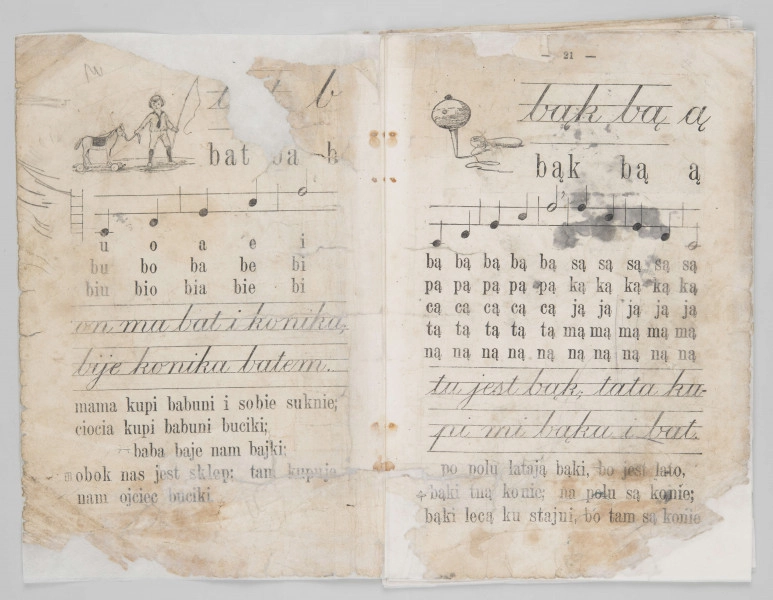 bat ba b
u o a e i
bu bo ba be bi
biu bio bia bie bi
on ma bat i konika,
bije konika batem.
mama kupi babuni i sobie suknie;
ciocia kupi babuni buciki;
baba baje nam bajki;
obok nas jest sklep; tam kupuje
nam ojciec buciki.
— 21 —
bąk bą ą
bąk bą ą
bą bą bą bą bą są są są są są
pą pą pą pą pą ką ką ką ką ką
cą cą cą cą cą ją ją ją ją ją
tą tą tą tą tą mą mą mą mą mą
ną ną ną ną ną ną ną ną ną ną
tu jest bąk, tata ku-
pi mi bąka i bat.
po polu latają bąki, bo jest lato,
bąki tną konie; na polu są konie;
bąki lecą ku stajni, bo tam są konie